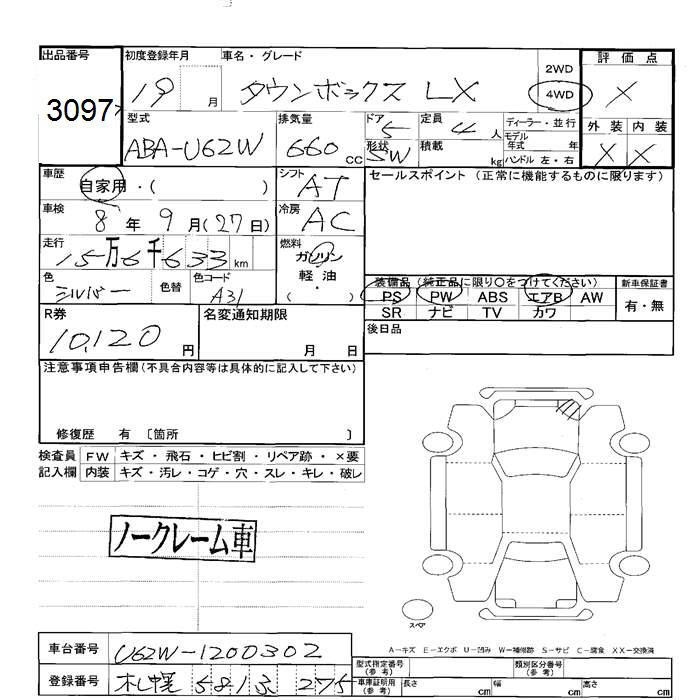 出品番号 初度登録年月 車名・グレード 2WD 評価点
3097 19 月 タウンボックス LX 4WD X
型式 排気量 ドア 5 定員 4 人 ディーラー・並行 外装 内装
ABA-U62W 660 CC 形状 SW 積載 kg モデル年式 年 X X
ハンドル 左・右
車歴 自家用・( ) シフト AT セールスポイント (正常に機能するものに限ります)
車検 8 年 9 月 (27日) 冷房 AC
走行 15万6千633 km 燃料 ガソリン
軽・油
( ・ )
色 シルバー 色替 色コード A31
装備品 (純正品に限り○をつけてください) 新車保証書
PS PW ABS エアB AW 有・無
SR ナビ TV カワ
R券 名変通知期限 後日品
10,120 円 月 日
注意事項申告欄(不具合内容等は具体的に記入して下さい)
修復歴 有 〔箇所 〕
検査員 FW キズ・飛石・ヒビ割・リペア跡・×要
記入欄 内装 キズ・汚レ・コゲ・穴・スレ・キレ・破レ
ノークレーム車
スペア
A-キズ E-エクボ U-凹み W-補修跡 S-サビ C-腐食 XX-交換済
車台番号 U62W-1200302
型式指定番号(参考) 類別区分番号(参考)
登録番号 札幌 581 275
車庫証明用(参考) 長さ cm 幅 cm 高さ cm